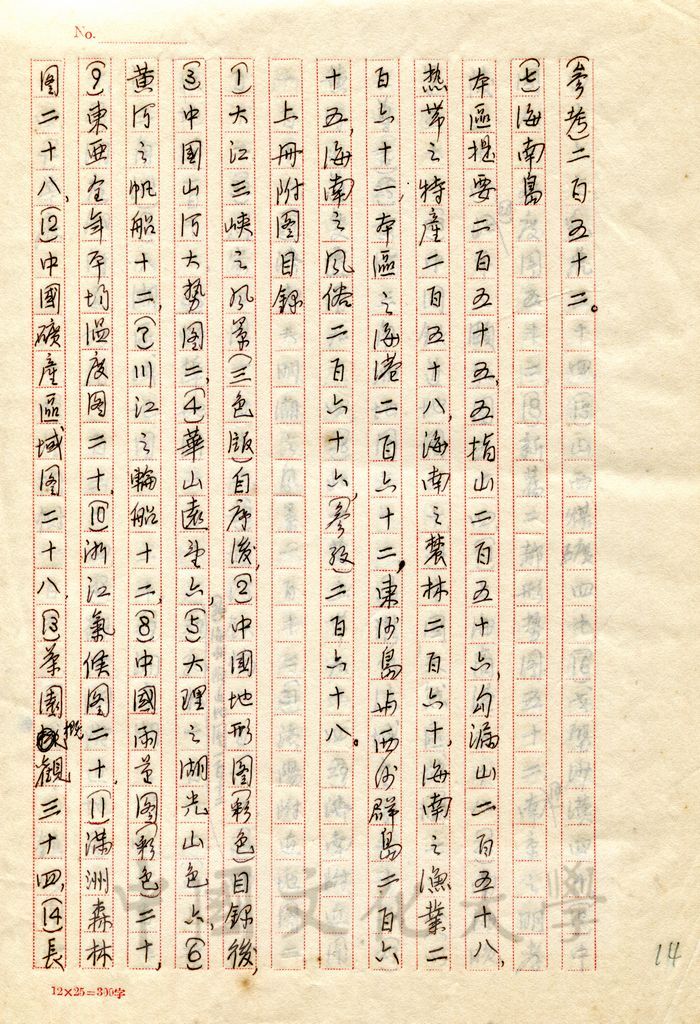 No.
(參考)二百五十二。
(七)海南島
本區提要二百五十五,五指山二百五十六,勾漏山二百五十八,
熱帶之特產二百五十八,海南之農林二百六十,海南之漁業二
百六十一,本區之海港二百六十二,東沙島與西沙群島二百六
十五,海南之風俗二百六十六,(參考)二百六十八。
上冊附圖目錄
(1)大江三峽之風景(三色版)自序後,(2)中國地形圖(彩色)目錄後,
(3)中國山河大勢圖二,(4)華山遠望六,(5)大理之湖光山色六,(6)
黃河之帆船十二,(7)川江之輪船十二,(8)中國雨量圖(彩色)二十,
(9)東亞全年平均溫度圖二十,(10)浙江氣候圖二十,(11)滿洲森林
圖二十八,(12)中國礦產區域圖二十八,(13)茶園概觀三十四,(14)長
12×25=300字
14
中國文化大學